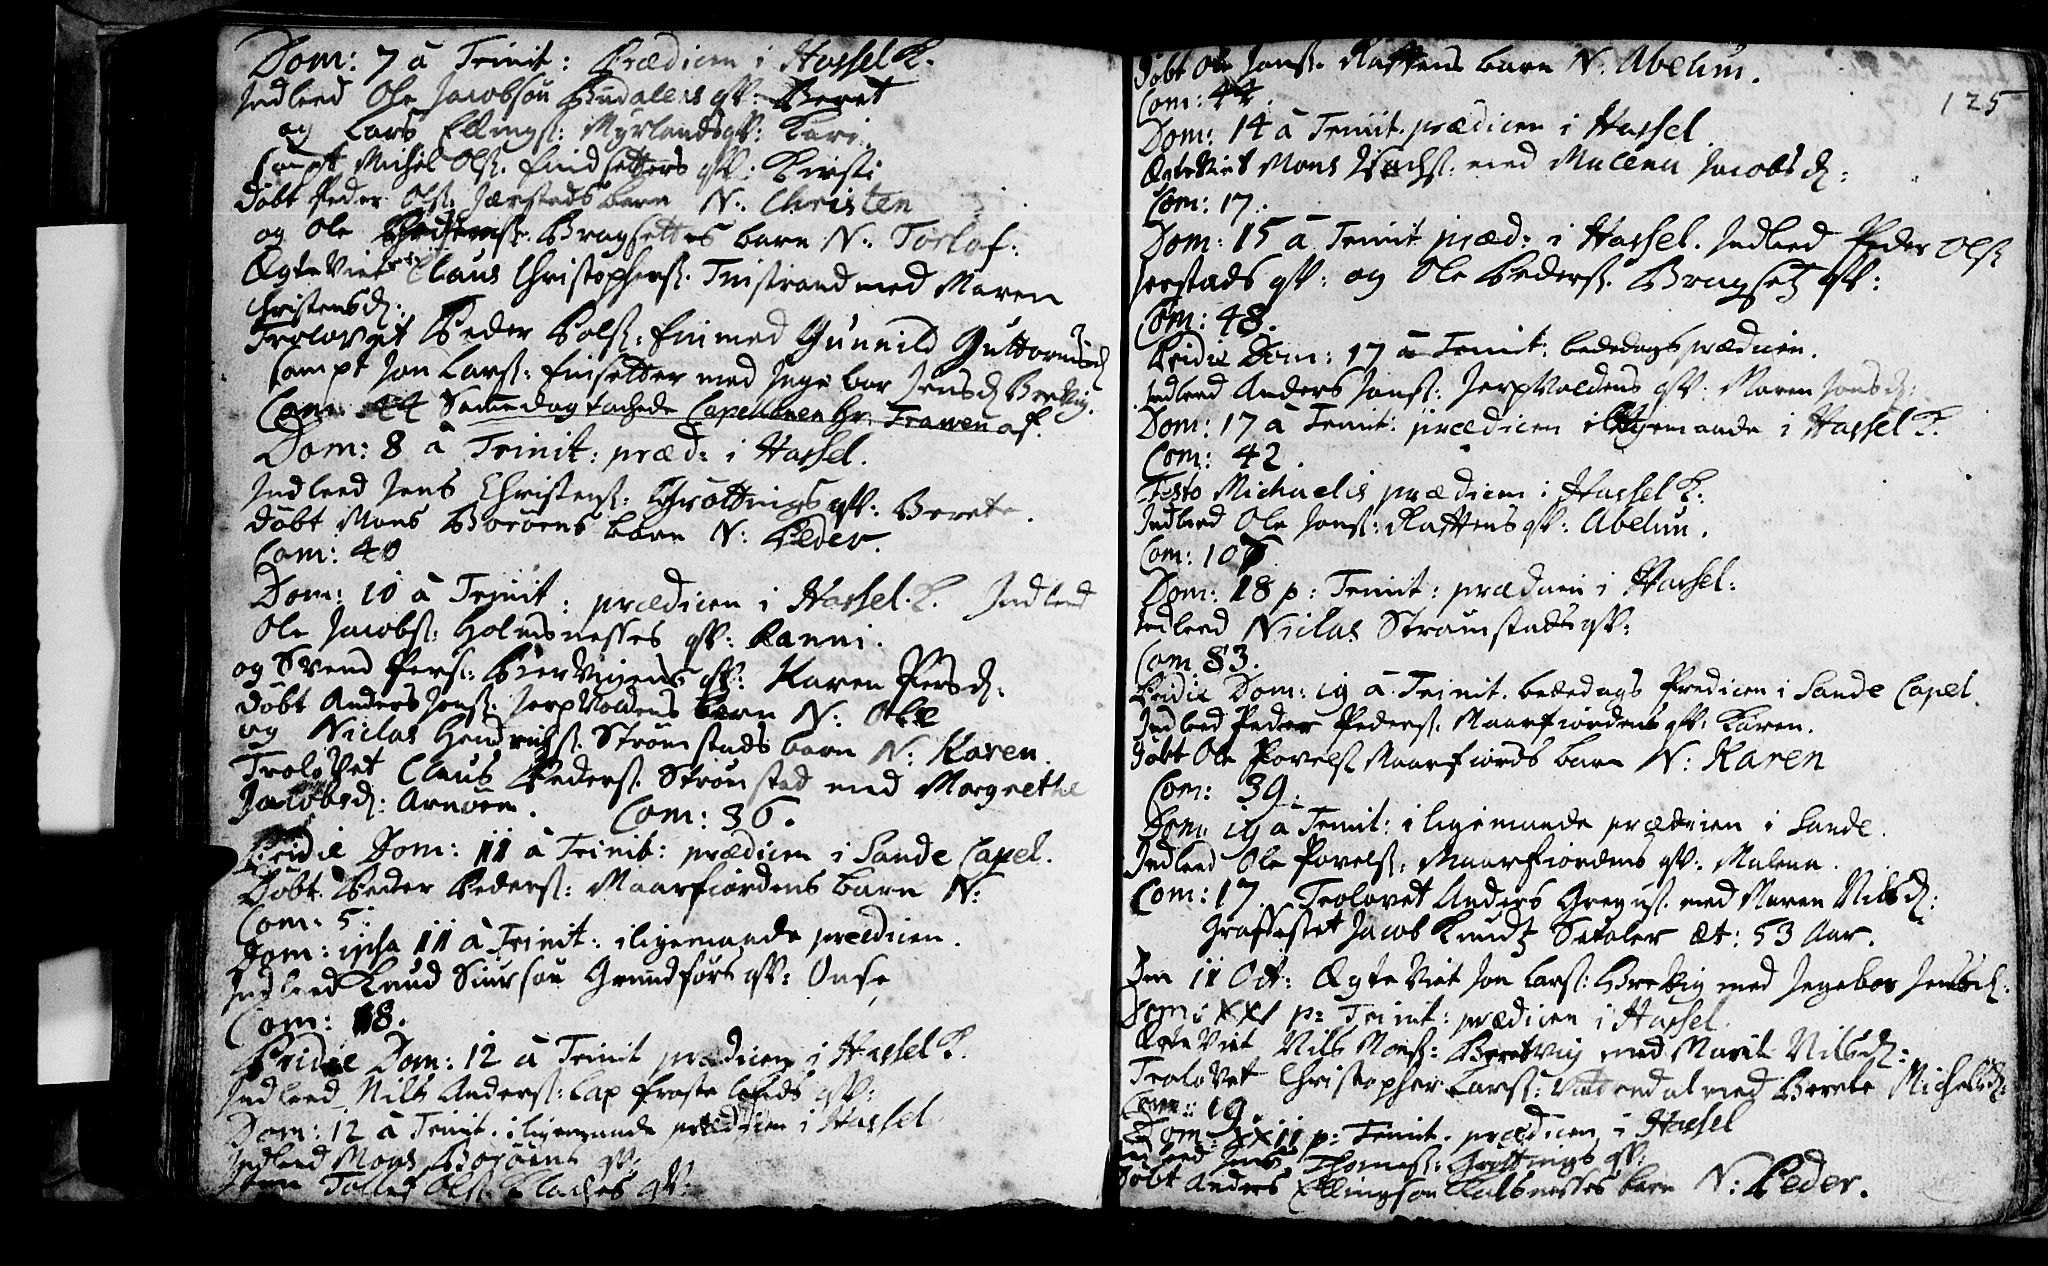 Dom: 7 à Trinit: Prædicen i Hassel K.
Indleed Ole Jacobsøn Budalens qv: Beret
og Lars Ellings: Myrlands qv: Kari
Michel Ols: Finsetters qv: Kirsti
Døbt Peder Ols: Jærstads barn N. Christen
og Ole Peders: Bragsettes barn N. Torlof:
Ægteviet Claus Christophers: Tnistrand med Maren
Christensd:
Trolovet Peder Pols: Fin med Gunnild Guttormsd
Sampt Jon Lars: Finsetter med Ingebor Jensd Brekvig.
Com: 44 Samme dag tachede Capellanen Hr. Trawen af.
Dom: 8 à Trinit: præd: i Hassel.
Indleed Jens Christens: Grøttnings qv: Berete.
Døbt Mons Borøens barn N: Peder.
Com: 40
Dom: 10 à Trinit: prædicen i Hassel. K. Indleed
Ole Jacobs: Holmsnesses qv: Ranni.
og Svend Pers: Biervigens qv: Karen Persd:
Døbt Anders Jons: Jerpvoldens barn N: Ole
og Niclas Hendrichs: Strømstads barn N: Karen.
Trolovet Claus Peders: Strømstad med Margrethe
Jacobsd: Arnøen. Com: 36.
Pridie Dom: 11 à Trinit: prædicen i Sande Capel.
Døbt Peder Peders: Maarfiordens barn N:
Com: 5:
Dom: ipsa 11 à Trinit: iligemaade prædicen.
Indleed Knud Siursøn Grundførs qv: Onse
Com: 18.
Pridie Dom: 12 à Trinit prædicen i Hassel K.
Indleed Nils Anders: Lap qv:
Dom: 12 à Trinit. iligemaade prædicen i Hassel
Indleed Mons Borøens qv:
Item Tollef Ols: qv:
Døbt Ole Jons: Raftens barn N: Abelun.
125
Com: 44.
Dom: 14 à Trinit. prædicen i Hassel
Ægteviet Mons Isachs: med Malena Jacobsd:
Com: 17.
Dom: 15 à Trinit præd: i Hassel. Indleed Peder Ols
Jerstads qv: og Ole Peders: Bragsetz qv:
Com: 48.
Pridie Dom: 17 à Trinit: bededags prædicen.
Indleed Anders Jons: Jerpvoldens qv: Maren Jonsd:
Dom: 17 à Trinit: prædicen iligemaade i Hassel K.
Com: 42.
Festo Michaelis prædicen i Hassel K.
Indleed Ole Jons: Raftens qv: Abelun.
Com: 106
Dom: 18 p: Trinit: prædicen i Hassel:
Indleed Niclas Strømstads qv:
Com 83.
Pridie Dom: 19 à Trinit. bededags Predicen i Sande Capel.
Indleed Peder Peders: Maarfiordens qv: Karen.
Døbt Ole Povels Maarfiords barn N: Karen
Com: 39.
Dom: 19 à Trinit: iligemaade prædicen i Sande.
Indleed Ole Povels: Maarfiordens qv: Malena.
Com: 17. Trolovet Anders Gregus: med Maren Nilsd:
Graffæstet Jacob Knudtz Sæteler æt: 53 Aar.
Den 11 Oct: Ægteviet Jon Lars: Brekvig med Ingebor Jensd:
Dom: XXI p: Trinit: prædicen i Hassel.
Ægteviet Nils Mons: Brekvig med Marit Nilsd:
Trolovet Christopher Lars: med Berete Michelsd:
Com: 19.
Dom: XXII p: Trinit. prædicen i Hassel
Indleed Jens Thomas: Grøttnings qv:
Døbt Anders Ellingsøn Kalsnesses barn N: Peder.